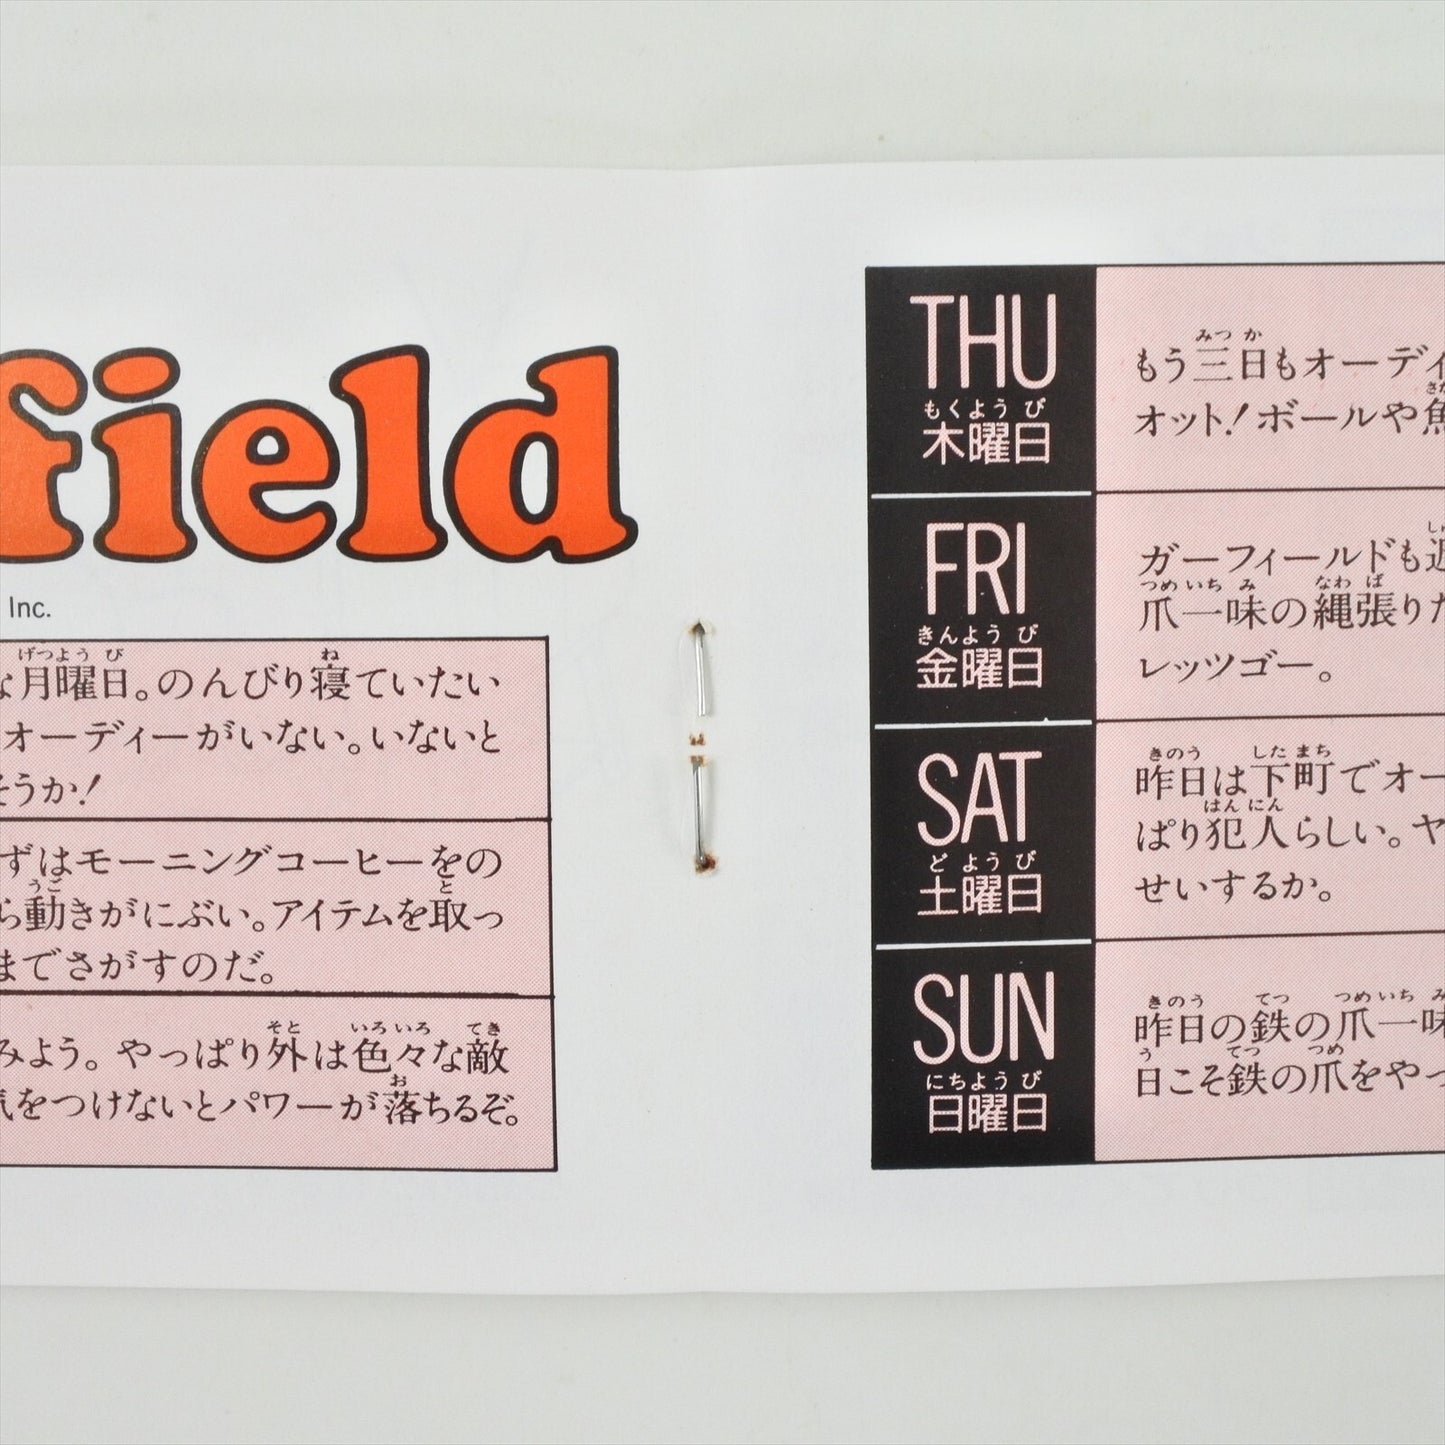 field
Inc.
な月曜日。のんびり寝ていたい
オーディーがいない。いないと
そうか!
ずはモーニングコーヒーをの
ら動きがにぶい。アイテムを取っ
までさがすのだ。
みよう。やっぱり外は色々な敵
気をつけないとパワーが落ちるぞ。
THU
木曜日
もう三日もオーディ
オット!ボールや魚
FRI
金曜日
ガーフィールドも
爪一味の縄張りだ
レッツゴー。
SAT
土曜日
昨日は下町でオー
ぱり犯人らしい。ヤ
せいするか。
SUN
日曜日
昨日の鉄の爪一味
日こそ鉄の爪をやっ